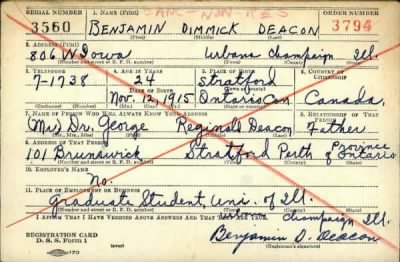 SERIAL NUMBER 1. NAME (Print) CANC-NON-RES ORDER NUMBER
3560 BENJAMIN DIMMICK DEACON 3794
(First) (Middle) (Last)
2. ADDRESS (Print)
806 W. Iowa Urbana Champaign Ill.
(Number and street or R. F. D. number) (Town) (County) (State)
3. TELEPHONE 4. AGE IN YEARS 5. PLACE OF BIRTH 6. COUNTRY OF CITIZENSHIP
7-1738 24 Stratford
DATE OF BIRTH (Town or county)
Nov. 12, 1915 Ontario Can Canada.
(Exchange) (Number) (Mo.) (Day) (Yr.) (State or country)
7. NAME OF PERSON WHO WILL ALWAYS KNOW YOUR ADDRESS 8. RELATIONSHIP OF THAT PERSON
(Mr.) Dr. George Reginald Deacon Father
(Mr., Mrs., Miss) (First) (Middle) (Last)
9. ADDRESS OF THAT PERSON
101 Brunswick Stratford Perth Province Ontario
(Number and street or R. F. D. number) (Town) (County) (State)
10. EMPLOYER'S NAME
No.
11. PLACE OF EMPLOYMENT OR BUSINESS
Graduate Student, Uni. of Ill. Champaign Ill.
(Number and street or R. F. D. number) (Town) (County) (State)
I AFFIRM THAT I HAVE VERIFIED ABOVE ANSWERS AND THAT THEY ARE TRUE.
REGISTRATION CARD
D. S. S. Form 1 (over) Benjamin D. Deacon
(Registrant's signature)